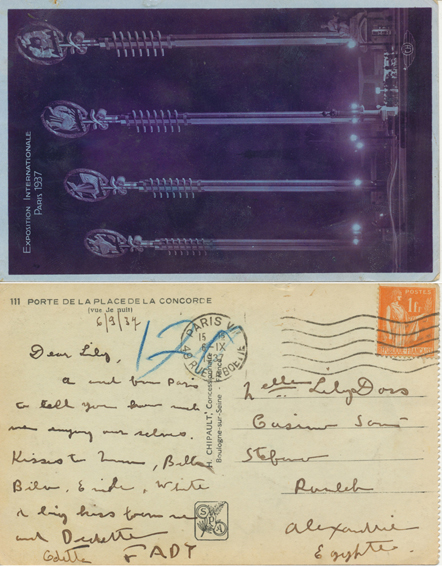 EXPOSITION INTERNATIONALE
PARIS 1937
111 PORTE DE LA PLACE DE LA CONCORDE
(vue de nuit)
6/9/37
Dear Lily,
a card from Paris
to tell you how much
we enjoy our selves.
Kisses to
&
a big kiss from me
and
Odette
FADY
H. CHIPAULT, Concessionnaire
Boulogne-sur-Seine - France
PARIS VII
6-IX
POSTES
1F
Lily Doss
Casino San
Stefano
Ramleh
Alexandrie
Egypte